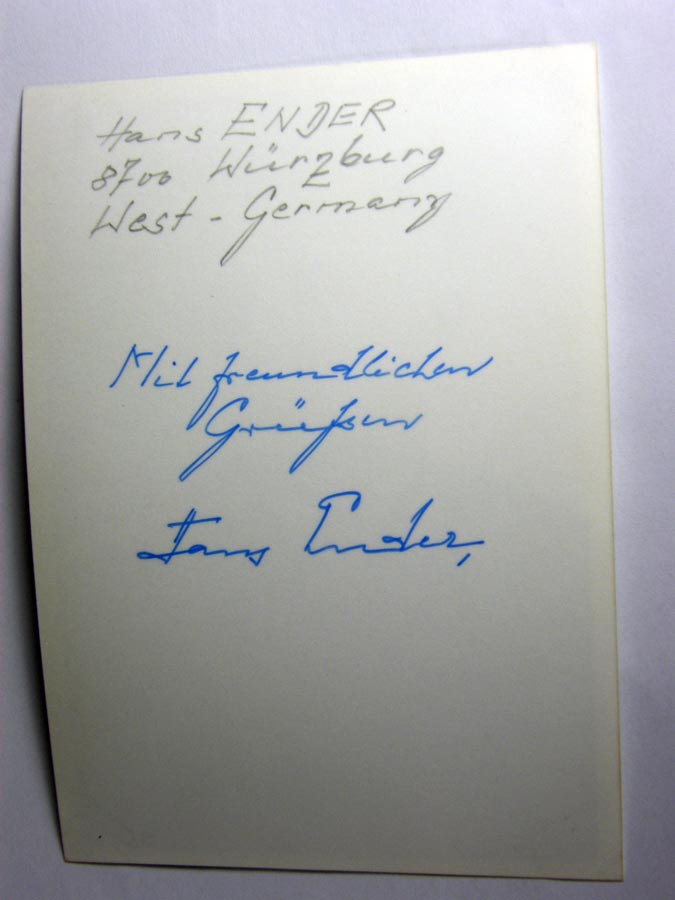 Hans ENDER
8700 Würzburg
West - Germany
Mit freundlichen
Grüßen
Hans Ender,